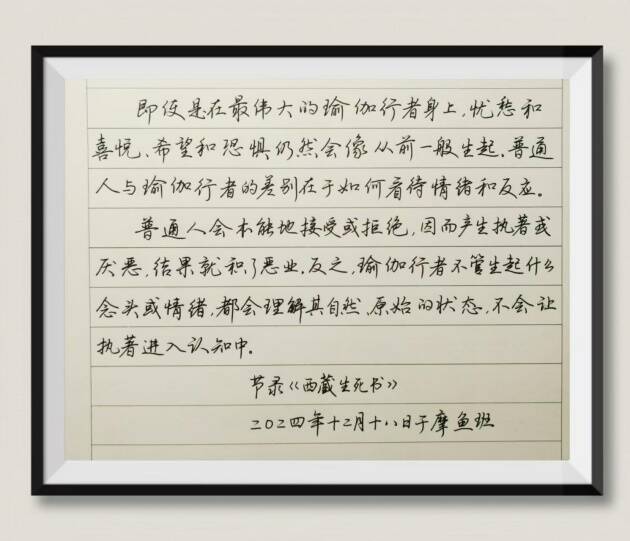 即使是在最伟大的瑜伽行者身上,忧愁和
喜悦、希望和恐惧仍然会像从前一般生起。普通
人与瑜伽行者的差别在于如何看待情绪和反应。
普通人会本能地接受或拒绝,因而产生执著或
厌恶,结果就积了恶业。反之,瑜伽行者不管生起什么
念头或情绪,都会理解其自然、原始的状态,不会让
执著进入认知中。
节录《西藏生死书》
二〇二四年十二月十八日于摩鱼班